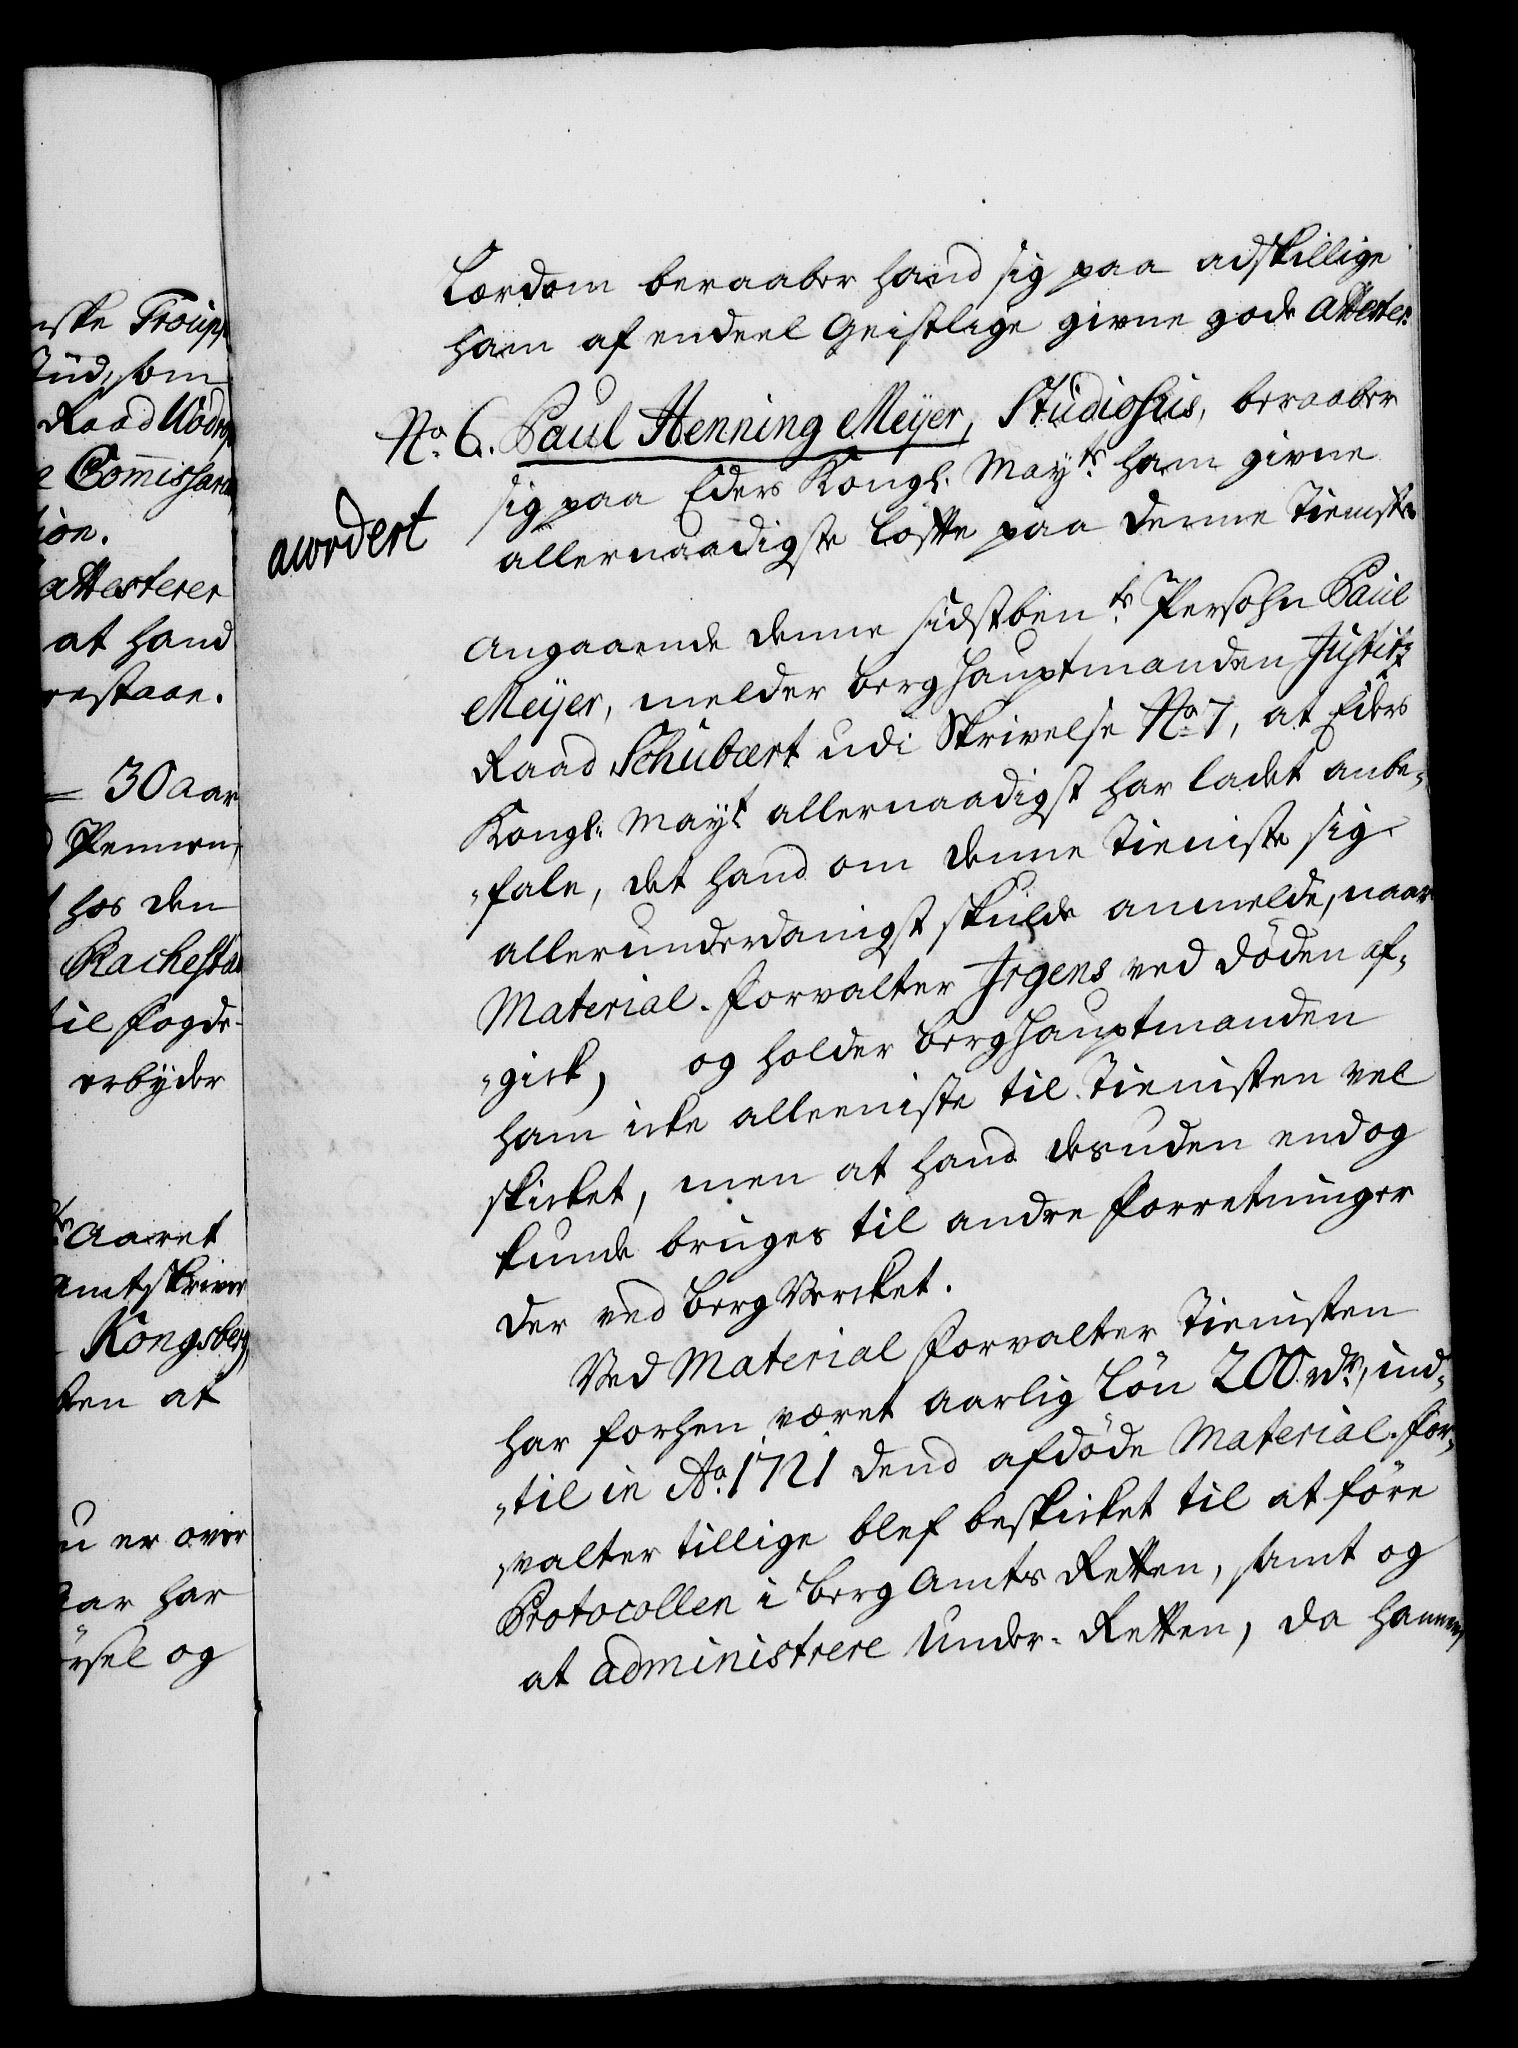 nske Troupp
Tiid, som
Raad Wodro
Commissari
ion.
attesterer
at hand
restaae.
= 30 aar
Pennen,
hos den
Rachesta
til fogde-
erbyder
Aaret
amtskriver
Kongsberg
ten at
u er over
aar har
örsel og
Lærdom beraaber hand sig paa adskillige
ham af endeel Geistlige givne gode Attester.
No. 6. Paul Henning Meÿer, Studiosus, beraaber
sig paa Eders Kongl. Mayts ham givne
acordert
allernaadigste Löfte paa denne Tieniste
Angaaende denne sidstbente Persohn Paul
Meÿer, melder Berghauptmanden Justitz
Raad Schubært udi Skrivelse No 7, at Eders
Kongl: Mayt allernaadigst har ladet anbe-
-fale, det hand om denne Tieniste sig
allerunderdanigst skulde anmelde, naar
Material-forvalter Irgens ved Döden af-
-gick, og holder Berghauptmanden
ham icke alleeniste til Tienisten vel
skicket, men at hand desuden endog
kunde bruges til andre forretninger
der ved BergVercket.
Ved Material forvalter Tienisten
har forhen været aarlig Lön 200 rdr, ind-
-til in Ao. 1721 dend afdöde Material-for-
-valter tillige blef beskicket til at före
Protocollen i BergAmts Retten, samt og
at administrere Under-Retten, da hannem